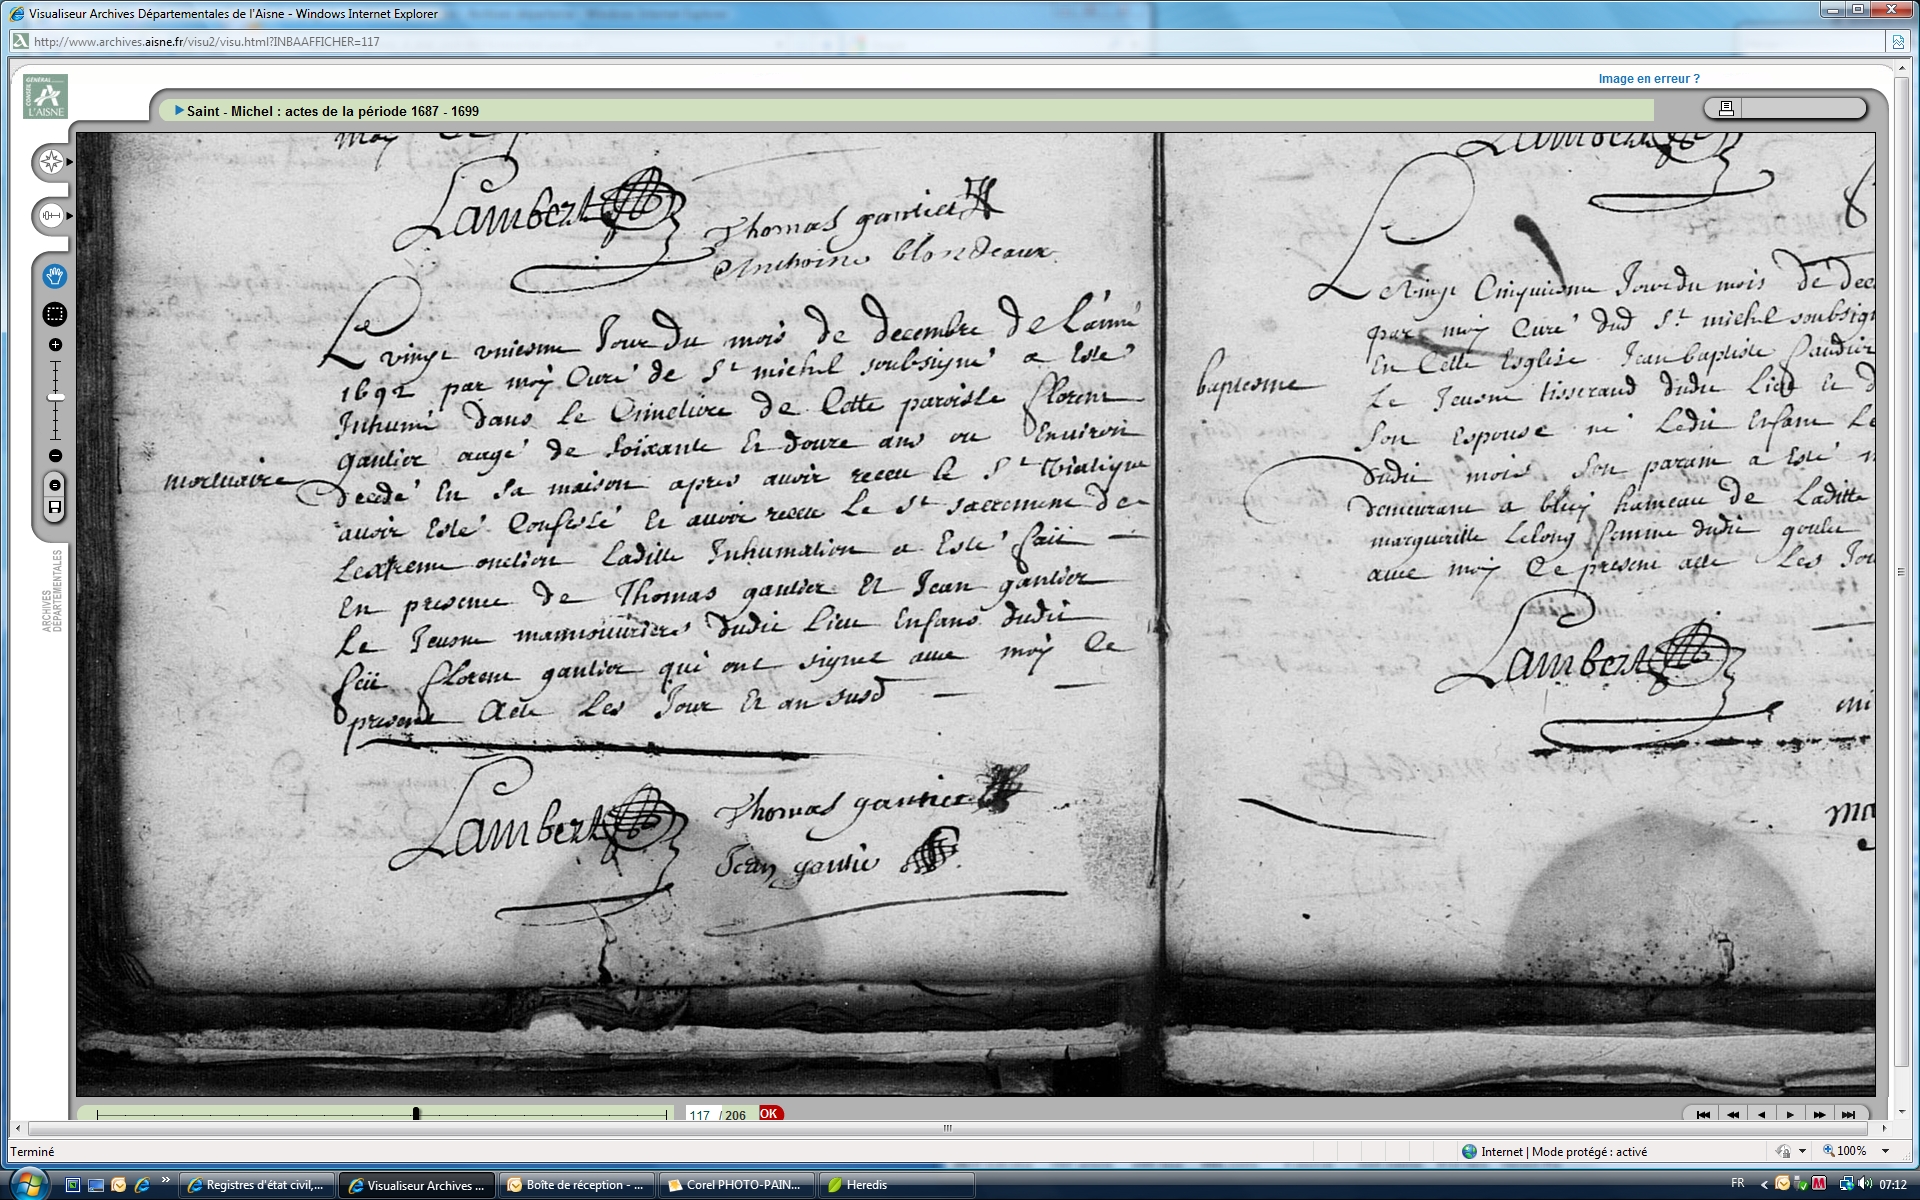 Visualiseur Archives Départementales de l'Aisne - Windows Internet Explorer
http://www.archives.aisne.fr/visu2/visu.html?INBAAFFICHER=117
Image en erreur ?
GÉNÉRAL
CONSEIL
L'AISNE
Saint - Michel : actes de la période 1687 - 1699
ARCHIVES
DÉPARTEMENTALES
Lambert
Thomas gautier
Anthoine blondeaux
Le vingt uniesme Jour du mois de decembre de L'année
1692 par moy Curé de St michel soubsigné a Esté
Inhumé dans le Cimetiere de Cette paroisse florent
gautier augé de soixante et douze ans ou Environ
mortuaire
decedé En sa maison apres avoir receu le St Viatique
avoir Esté Confessé Et avoir receu Le St sacrement de
Lextreme onction Laditte Inhumation a Esté fait
En presence de Thomas gautier Et Jean gautier
Le Jeusne mannouvriers dudit Lieu Enfans dudit
feü florent gautier qui ont signez avec moy Ce
present Acte Les Jour Et an susd
Lambert
Thomas gautier
Jean gautie
Lambert
Le Vingt Cinquiesme Jour du mois de dec
par moy Curé dud St michel soubsig
En Cette Esglise Jean baptiste
baptesme
Le Jeusne tisserand dudit Lieu Et d
son Espouse né Ledit Enfant Le
dudit mois son parain a Esté
demeurant a hameau de Laditte
margueritte Lelong femme dudit goulu
avec moy Ce present acte Les Jou
Lambert
117 / 206 OK
Terminé
Internet | Mode protégé : activé
100%
Registres d'état civil,...
Visualiseur Archives ...
Boîte de réception - ...
Corel PHOTO-PAIN...
Heredis
FR
07:12